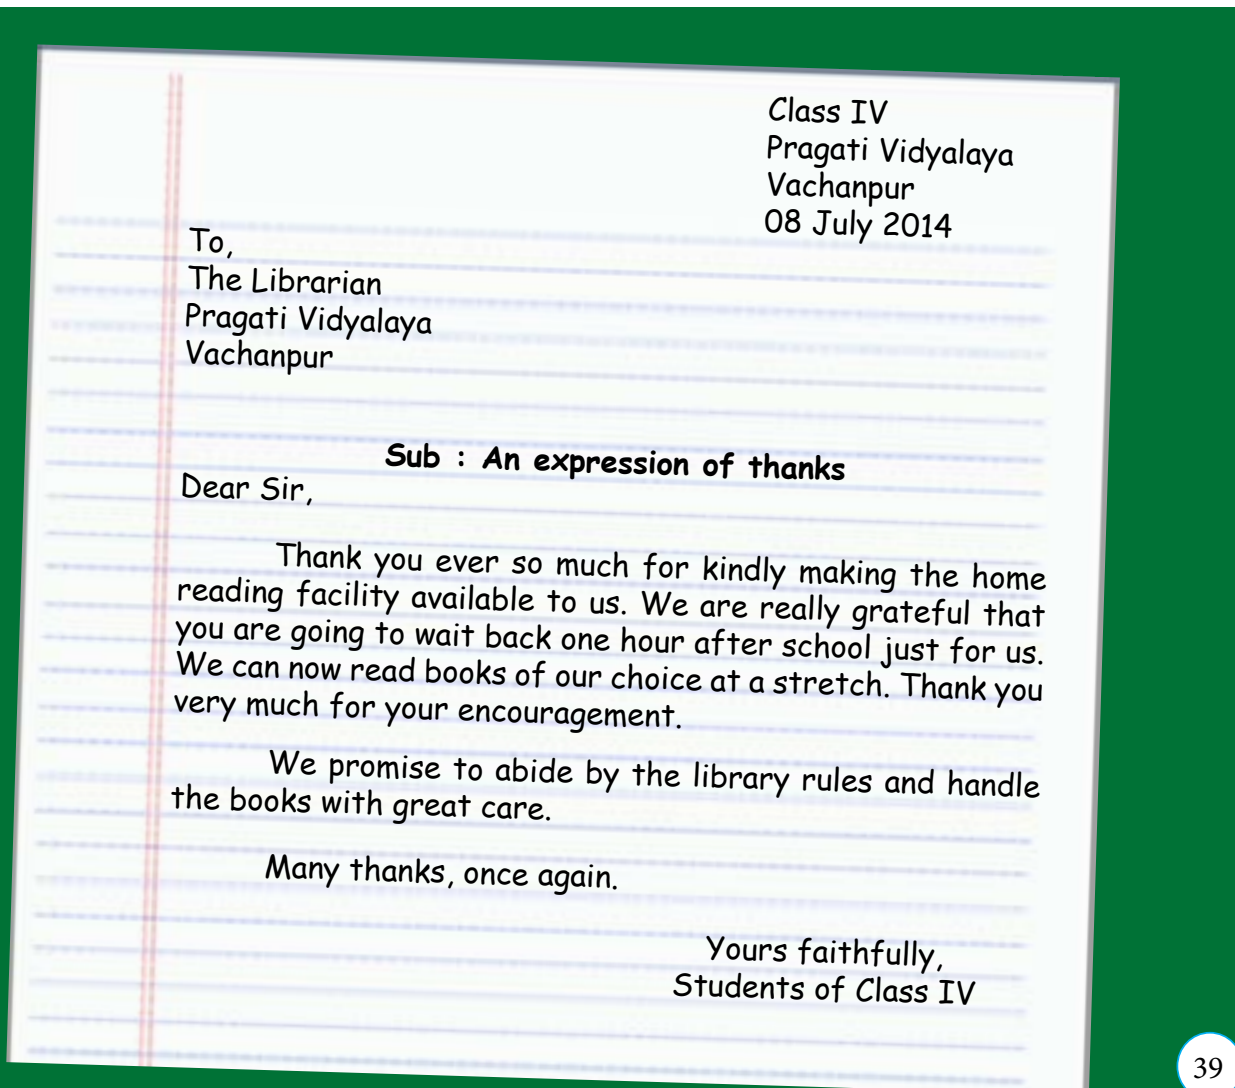 Class IV
Pragati Vidyalaya
Vachanpur
08 July 2014
To,
The Librarian
Pragati Vidyalaya
Vachanpur
Sub : An expression of thanks
Dear Sir,
Thank you ever so much for kindly making the home
reading facility available to us. We are really grateful that
you are going to wait back one hour after school just for us.
We can now read books of our choice at a stretch. Thank you
very much for your encouragement.
We promise to abide by the library rules and handle
the books with great care.
Many thanks, once again.
Yours faithfully,
Students of Class IV
39